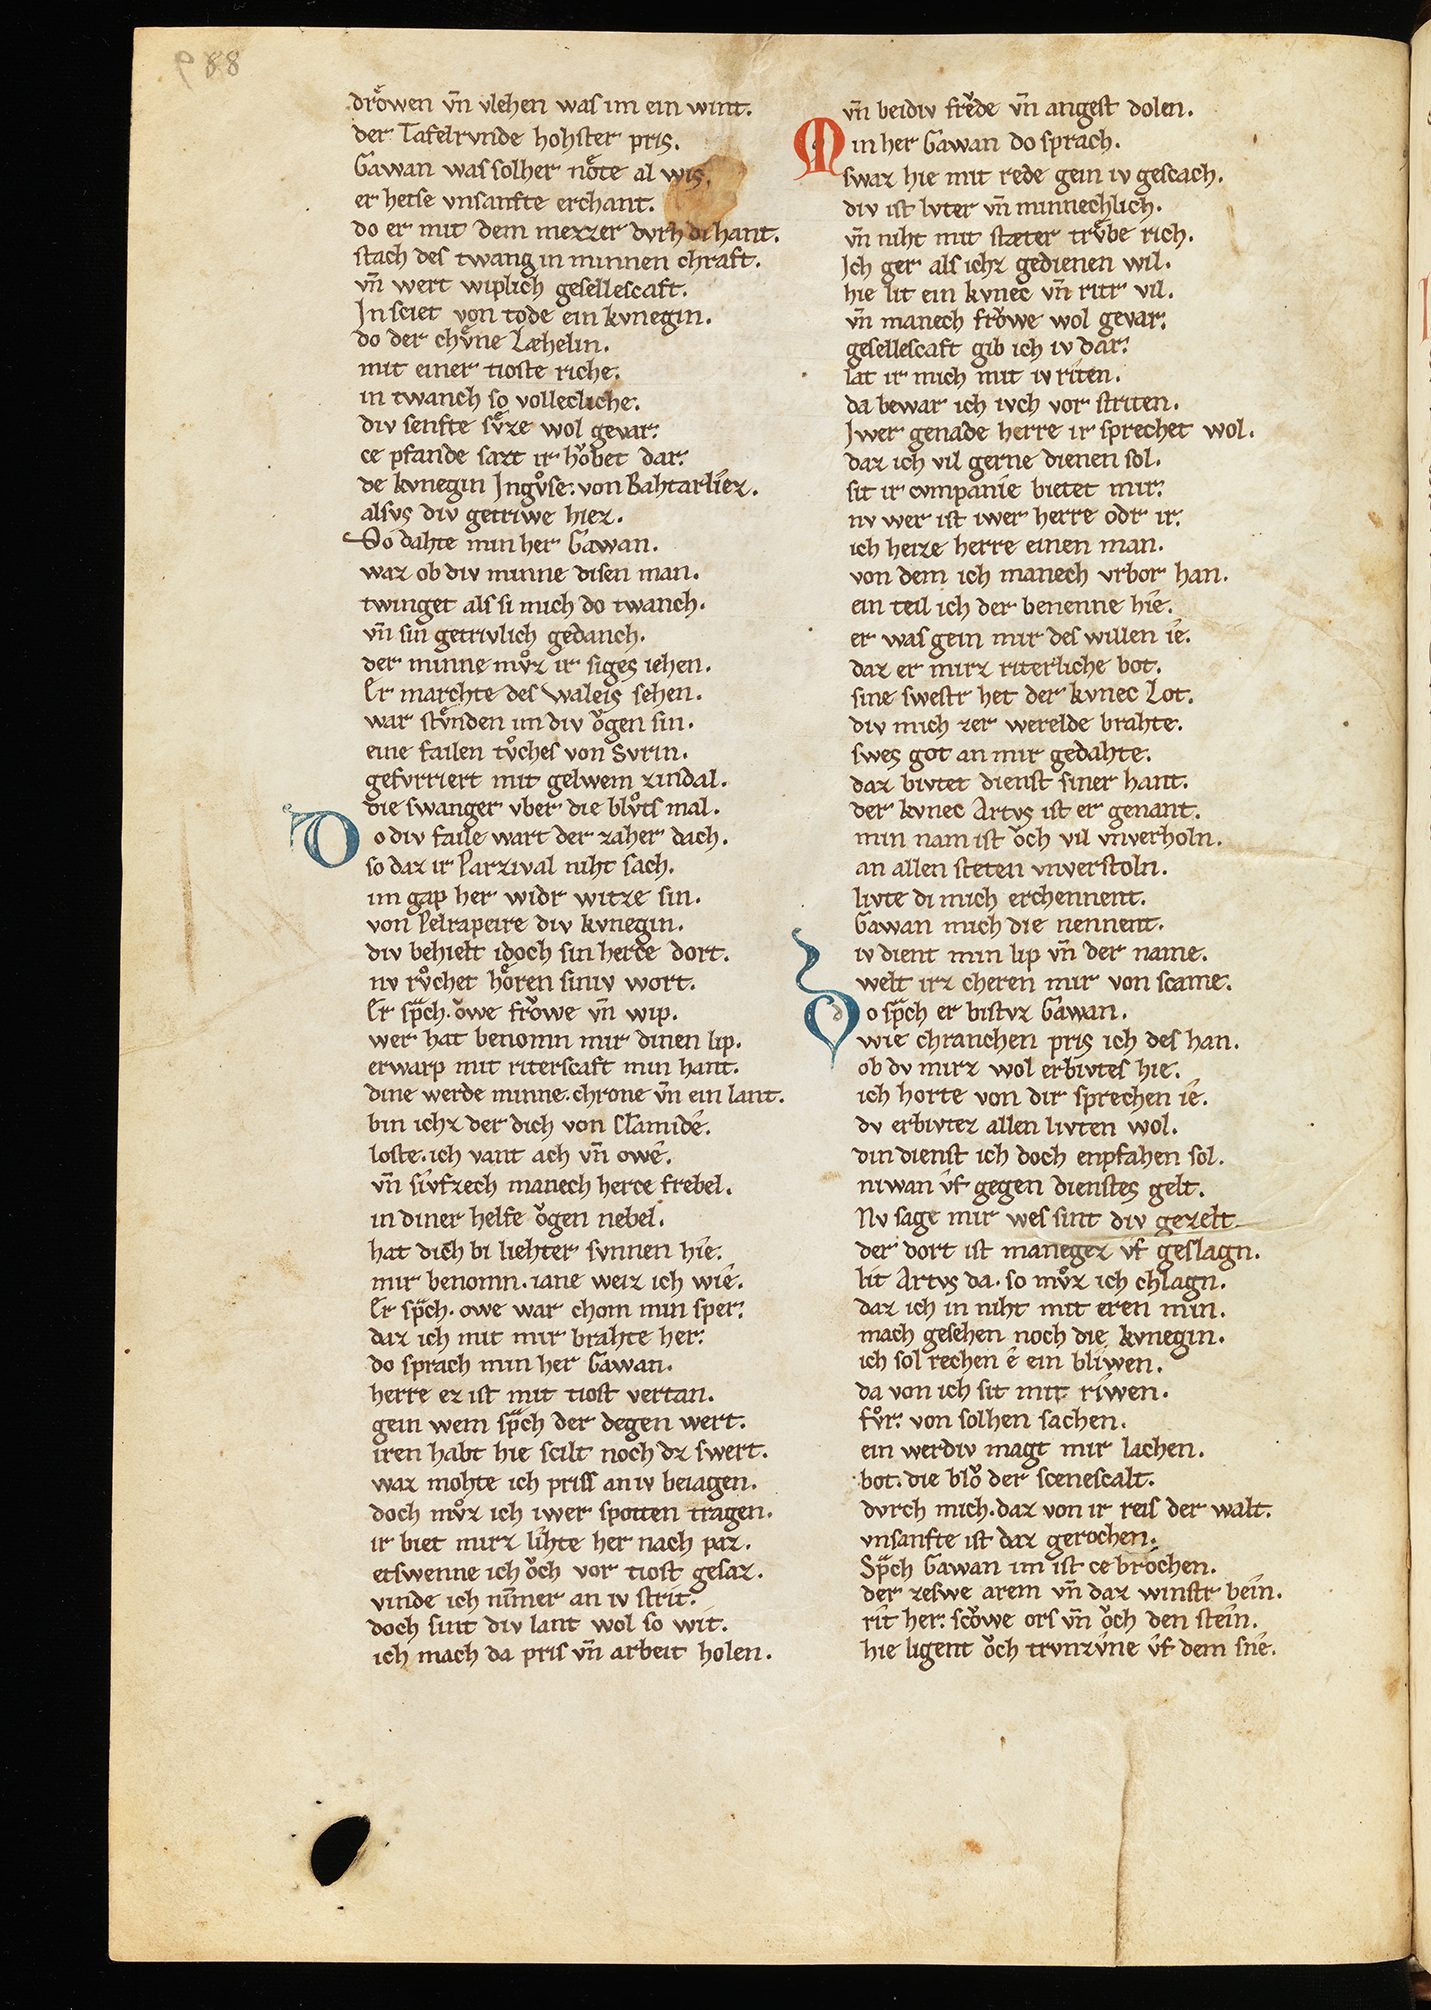 988
drowen vn̄ vlehen was im ein wint.
der Tafelrvnde hohster pris.
Gawan was solher nͦte al wis.
er hetse vnsanfte erchant.
do er mit dem mezzer dvrh di hant.
stach des twang in minnen chraft.
vn̄ wert wiplich gesellescaft.
In sciet von tode ein kvnegin.
do der chvͤne Læhelin.
mit einer tioste riche.
in twanch so vollecliche.
div senfte svͤze wol gevar.
ce pfande sazt ir hoͮbet dar.
de kvnegin Ingvͦse. von Bahtarliez.
alsvs div getriwe hiez.
Do dahte min her Gawan.
waz ob div minne disen man.
twinget als si mich do twanch.
vn̄ sin getrivlich gedanch.
der minne mvͦz ir siges iehen.
Er marchte des Waleis sehen.
war stvͤnden im div oͮgen sin.
eine failen tvͦches von Svrin.
gefvrriert mit gelwem zindal.
die swanger vber die blvͦts mal.
Do div faile wart der zaher dach.
so daz ir Parzival niht sach.
im gap her widr witze sin.
von Pelrapeire div kvnegin.
div behielt idoch sin herce dort.
nv rvͦchet hoͤren siniv wort.
Er spͣch. oͮwe froͮwe vn̄ wip.
wer hat benomn mir dinen lip.
erwarp mit riterscaft min hant.
dine werde minne. chrone vn̄ ein lant.
bin ichz der dich von Clamide.
loste. ich vant ach vn̄ owe.
vn̄ sivfzech manech herce frebel.
in diner helfe oͮgen nebel.
hat dich bi liehter svnnen hie.
mir benomn. iane weiz ich wie.
Er spͣch. owe war chom min sper.
daz ich mit mir brahte her.
do sprach min her Gawan.
herre ez ist mit tiost vertan.
gein wem spͣch der degen wert.
iren habt hie scilt noch dz swert.
waz mohte ich priss an iv beiagen.
doch mvͦz ich iwer spotten tragen.
ir biet mirz lihte her nach paz.
etswenne ich oͮch vor tiost gesaz.
vinde ich nim̄er an iv strit.
doch sint div lant wol so wit.
ich mach da pris vn̄ arbeit holen.
vn̄ beidiv frͤde vn̄ angest dolen.
Min her Gawan do sprach.
swaz hie mit rede gein iv gescach.
div ist lvter vn̄ minnechlich.
vn̄ niht mit stæter trvͤbe rich.
Ich ger als ichz gedienen wil.
hie lit ein kvnec vn̄ ritr vil.
vn̄ manech froͮwe wol gevar.
gesellescaft gib ich iv dar.
lat ir mich mit iv riten.
da bewar ich ivch vor striten.
Iwer genade herre ir sprechet wol.
daz ich vil gerne dienen sol.
sit ir cvmpanie bietet mir.
nv wer ist iwer herre odr ir.
ich heize herre einen man.
von dem ich manech vrbor han.
ein teil ich der benenne hie.
er was gein mir des willen ie.
daz er mirz riterliche bot.
sine swestr het der kvnec Lot.
div mich zer werelde brahte.
swes got an mir gedahte.
daz bivtet dienst siner hant.
der kvnec Artvs ist er genant.
min nam ist oͮch vil vnverholn.
an allen steten vnverstoln.
livte di mich erchennent.
Gawan mich die nennent.
iv dient min lip vn̄ der name.
welt irz cheren mir von scame.
Do spͣch er bistvz Gawan.
wie chranchen pris ich des han.
ob dv mirz wol erbivtes hie.
ich horte von dir sprechen ie.
dv erbivtez allen livten wol.
din dienst ich doch enpfahen sol.
niwan vf gegen dienstes gelt.
Nv sage mir wes sint div gezelt
der dort ist maneger vf geslagn.
lit Artvs da. so mvͦz ich chlagn.
daz ich in niht mit eren min.
mach gesehen noch die kvnegin.
ich sol rechen e ein bliwen.
da von ich sit mit riwen.
fvͦr. von solhen sachen.
ein werdiv magt mir lachen.
bot. die bloͮ der scenescalt.
dvrch mich. daz von ir reis der walt.
vnsanfte ist daz gerochen.
Spͣch Gawan im ist ce brochen.
der zeswe arem vn̄ daz winstr bein.
rit her. scoͮwe ors vn̄ oͮch den stein.
hie ligent oͮch trvnzvne vf dem sne.